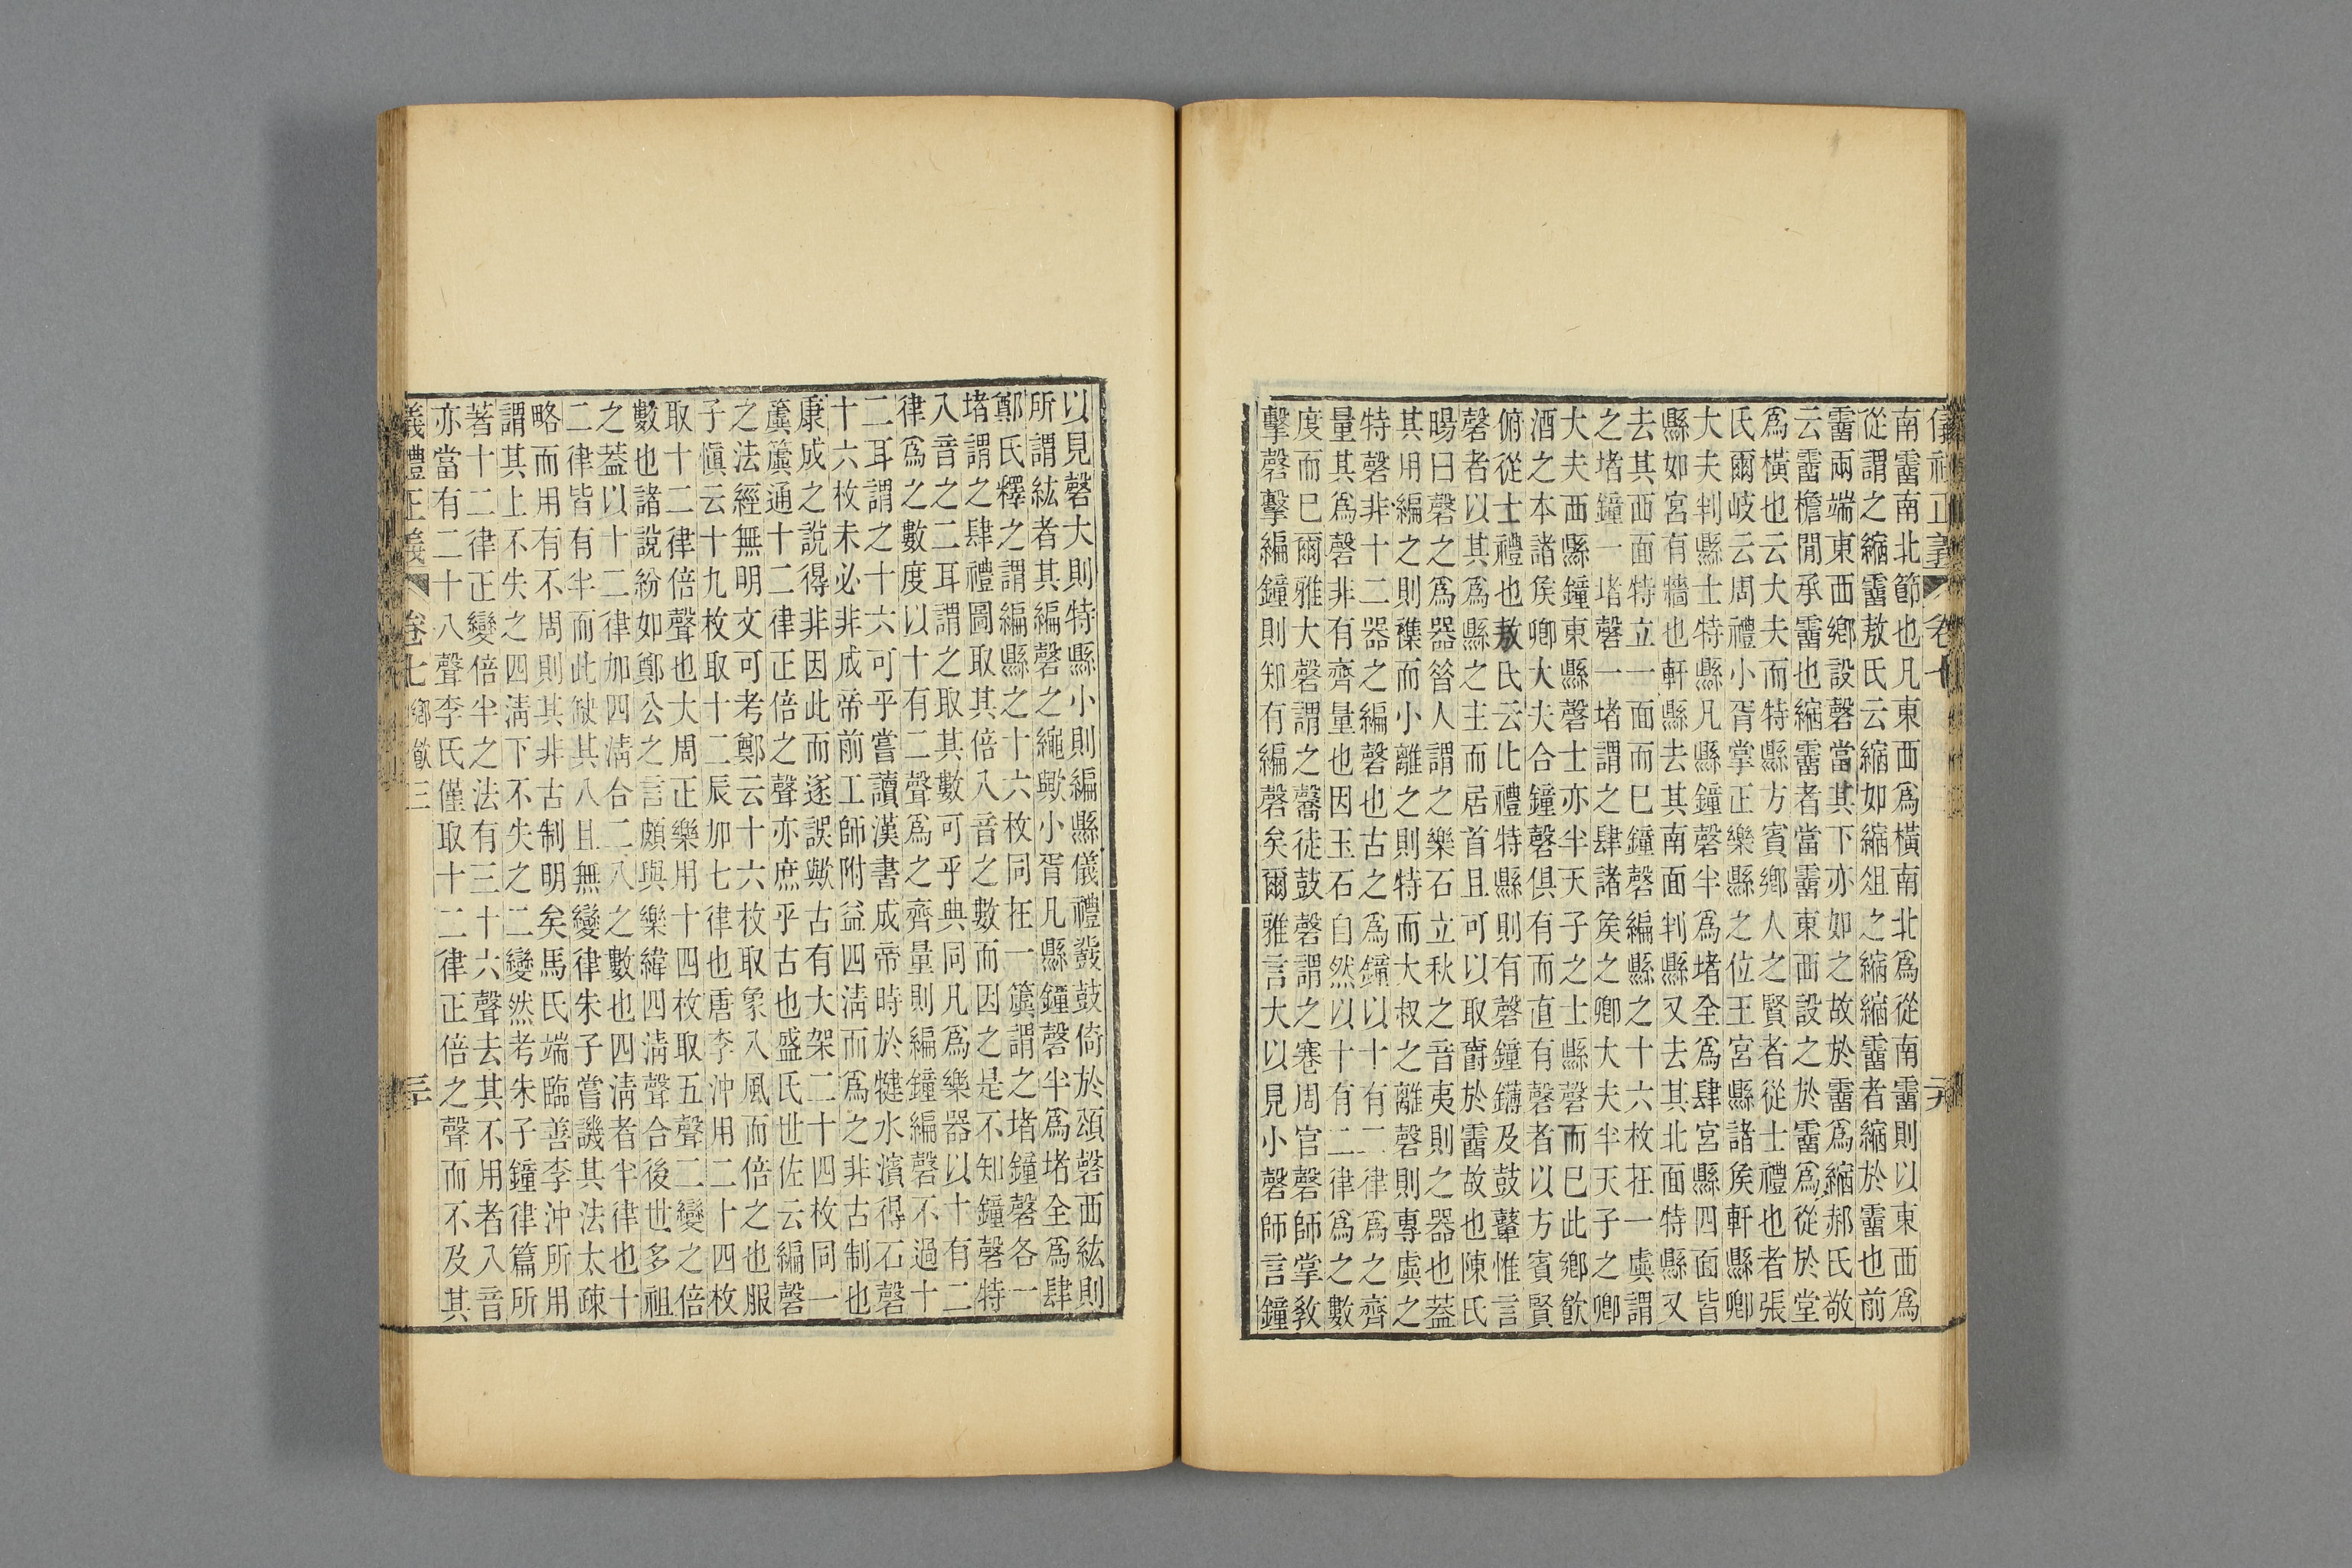 儀禮正義 卷七 二九
南霤南北節也凡東西爲橫南北爲從南霤則以東西爲
從謂之縮霤敖氏云縮如縮俎之縮縮霤者縮於霤也前
霤兩端東西鄕設磬當其下亦如之故於霤爲縮郝氏敬
云霤檐閒承霤也縮霤者當霤東西設之於霤爲從於堂
爲橫也云大夫而特縣方賓鄕人之賢者從士禮也者張
氏爾岐云周禮小胥掌正樂縣之位王宮縣諸矦軒縣卿
大夫判縣士特縣凡縣鐘磬半爲堵全爲肆宮縣四面皆
縣如宮有牆也軒縣去其南面判縣又去其北面特縣又
去其西面特立一面而已鐘磬編縣之十六枚在一虡謂
之堵鐘一堵磬一堵謂之肆諸矦之卿大夫半天子之卿
大夫西縣鐘東縣磬士亦半天子之士縣磬而已此鄕飮
酒之本諸矦卿大夫合鐘磬俱有而直有磬者以方賓賢
俯從士禮也敖氏云比禮特縣則有磬鐘鑮及鼓鼙惟言
磬者以其爲縣之主而居首且可以取㕑於霤故也陳氏
暘曰磬之爲器㫺人謂之樂石立秋之音夷則之器也蓋
其用編之則襍而小離之則特而大叔之離磬則專虡之
特磬非十二器之編磬也古之爲鐘以十有二律爲之齊
量其爲磬非有齊量也因玉石自然以十有二律爲之數
度而已爾雅大磬謂之毊徒鼓磬謂之寋周官磬師掌敎
擊磬擊編鐘則知有編磬矣爾雅言大以見小磬師言鐘
以見磬大則特縣小則編縣儀禮鼗鼓倚於頌磬西紘則
所謂紘者其編磬之繩歟小胥凡縣鐘磬半爲堵全爲肆
鄭氏釋之謂編縣之十六枚同在一簴謂之堵鐘磬各一
堵謂之肆禮圖取其倍八音之數而因之是不知鐘磬特
八音之二耳謂之取其數可乎典同凡爲樂器以十有二
律爲之數度以十有二聲爲之齊量則編鐘編磬不過十
二耳謂之十六可乎嘗讀漢書成帝時於犍水濱得石磬
十六枚未必非成帝前工師附益四淸而爲之非古制也
康成之說得非因此而遂誤歟古有大架二十四枚同一
簨簴通十二律正倍之聲亦庶乎古也盛氏世佐云編磬
之法經無明文可考鄭云十六枚取象八風而倍之也服
子愼云十九枚取十二辰加七律也唐李沖用二十四枚
取十二律倍聲也大周正樂用十四枚取五聲二變之倍
數也諸說紛如鄭公之言頗與樂緯四淸聲合後世多祖
之蓋以十二律加四淸合二八之數也四淸者半律也十
二律皆有半而此缺其八且無變律朱子嘗譏其法太疎
略而用有不周則其非古制明矣馬氏端臨善李沖所用
謂其上不失之四淸下不失之二變然考朱子鐘律篇所
著十二律正變倍半之法有三十六聲去其不用者八音
亦當有二十八聲李氏僅取十二律正倍之聲而不及其
儀禮正義 卷七 鄕飮三 三十